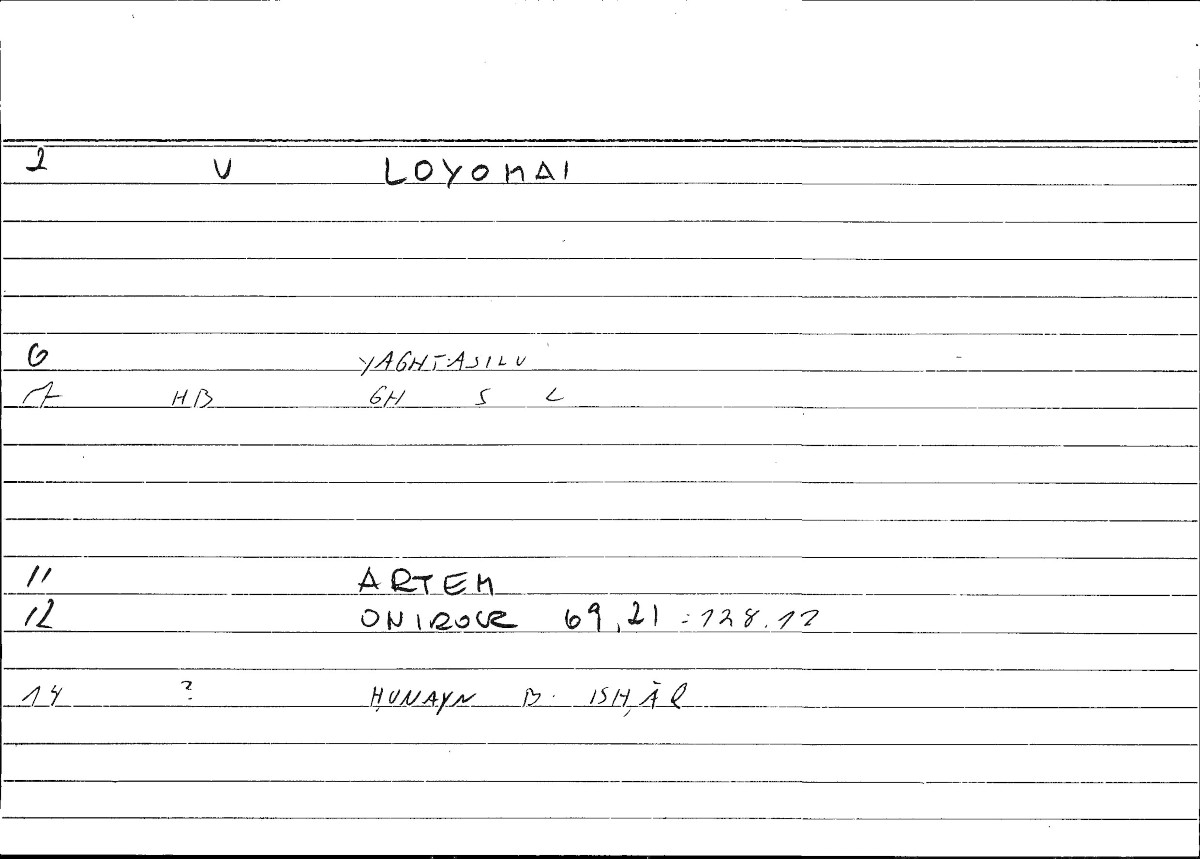 2 V LOYOMAI
6 YAGHTASILU
7 HB GH S L
11 ARTEM
12 ONIROCR 69,21 = 128.12
14 ? ḤUNAYN B. ISḤĀQ